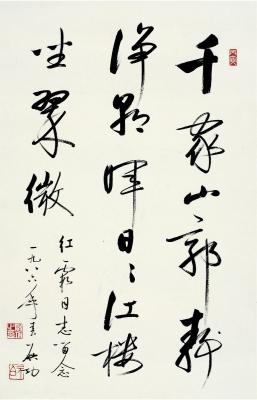 千家山郭静
朝晖日日江楼
坐翠微
红霞同志留念
一九八六年春 启功